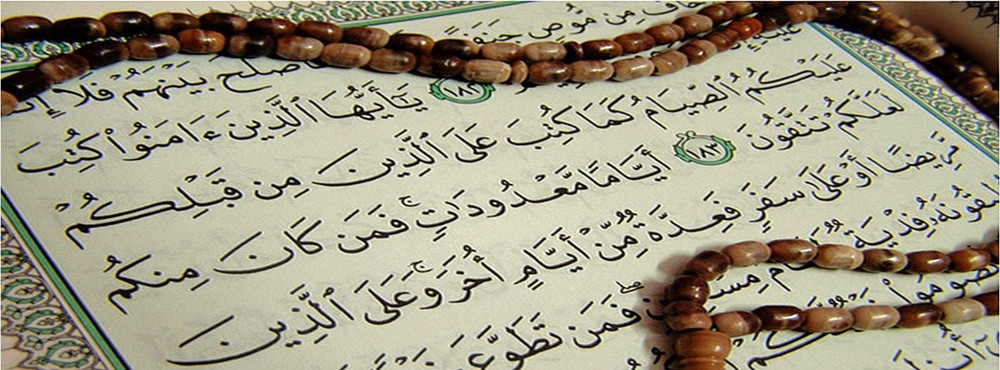 مِن مُّوصٍ جَنَفًا بَيْنَهُمْ فَلَا
١٨٢ يَٰٓأَيُّهَا ٱلَّذِينَ ءَامَنُوا۟ كُتِبَ
عَلَيْكُمُ ٱلصِّيَامُ كَمَا كُتِبَ عَلَى ٱلَّذِينَ مِن قَبْلِكُمْ
لَعَلَّكُمْ تَتَّقُونَ ١٨٣ أَيَّامًا مَّعْدُودَٰتٍ ۚ فَمَن كَانَ مِنكُم
مَّرِيضًا أَوْ عَلَىٰ سَفَرٍ فَعِدَّةٌ مِّنْ أَيَّامٍ أُخَرَ ۚ وَعَلَى ٱلَّذِينَ
فِدْيَةٌ فَمَن تَطَوَّعَ